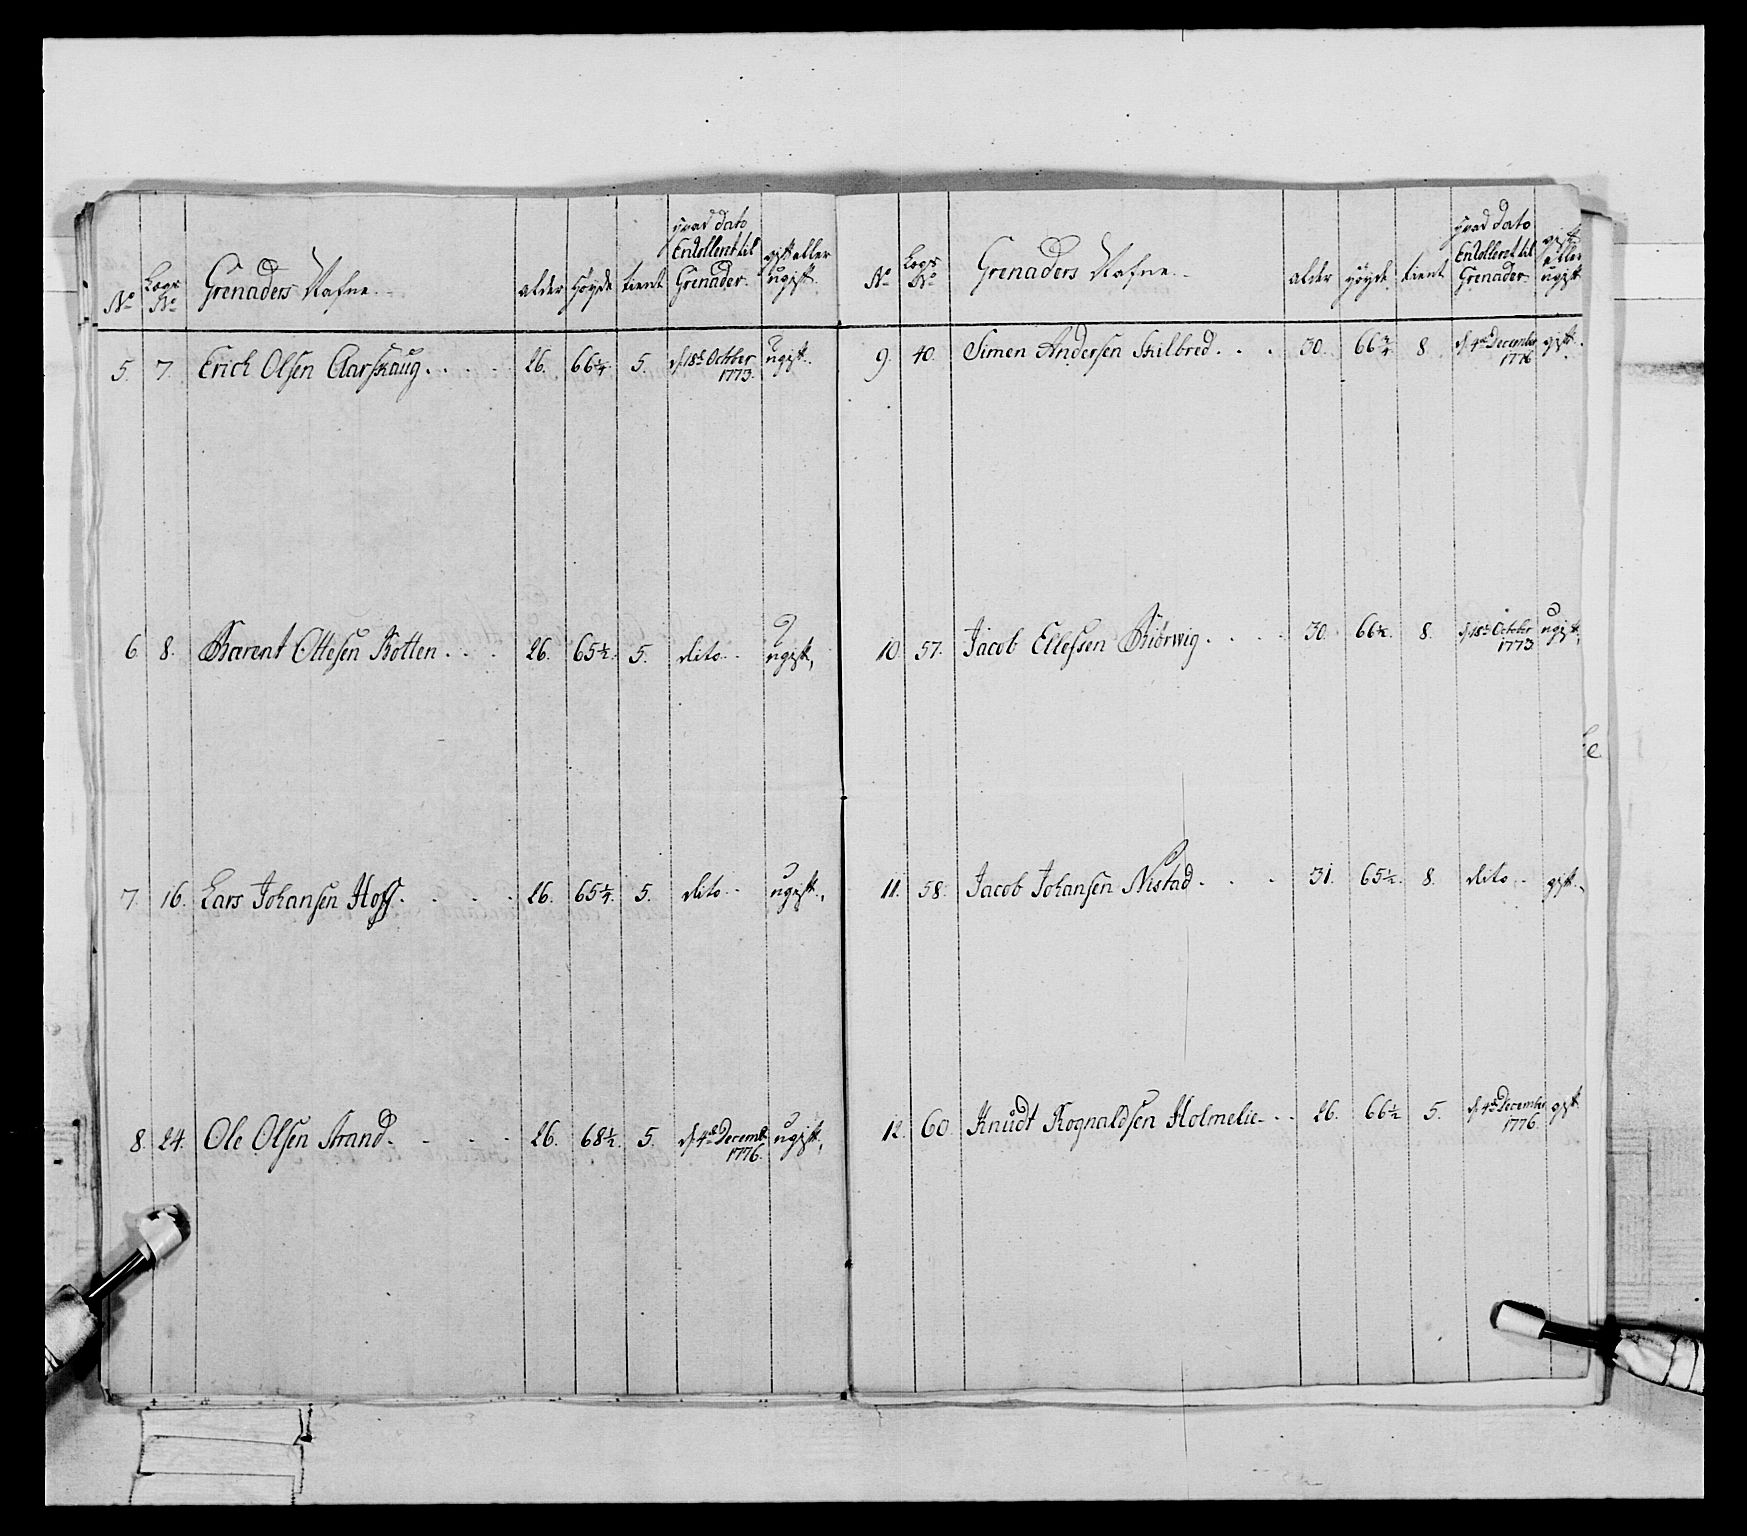 No
Legs No
Grenaders Nafne
alder
Høyde
tient
hvad Dato
Enrolleret til
Grenader
gift eller
ugift
5. 7. Erich Olsen Aarskaug. 26. 66¼ 5. d. 18de October 1773. ugift.
6. 8. Barent Ottesen Rotten 26. 65½. 5. dito ugift,
7. 16. Lars Johansen Hoff. 26. 65¼. 5. dito ugift.
8. 24. Ole Olsen Strand. 26. 68½. 5. d. 4de Decemb: 1776. ugift,
No
Legs No
Grenaders Nafne
alder
høyde
tient
hvad Dato
Enrolleret til
Grenader
gift
eller
ugift
9. 40. Simen Andersen 30. 66¾ 8. d. 4de December 1776 gift.
10. 57. Jacob Ellefsen Biørwig. 30. 66½. 8. d. 18de October 1773 ugift,
11. 58. Jacob Johansen Nistad. 31. 65½. 8. dito gift.
12. 60. Knudt Rognaldsen Holmelie 26. 66½ 5. d. 4de December 1776. gift